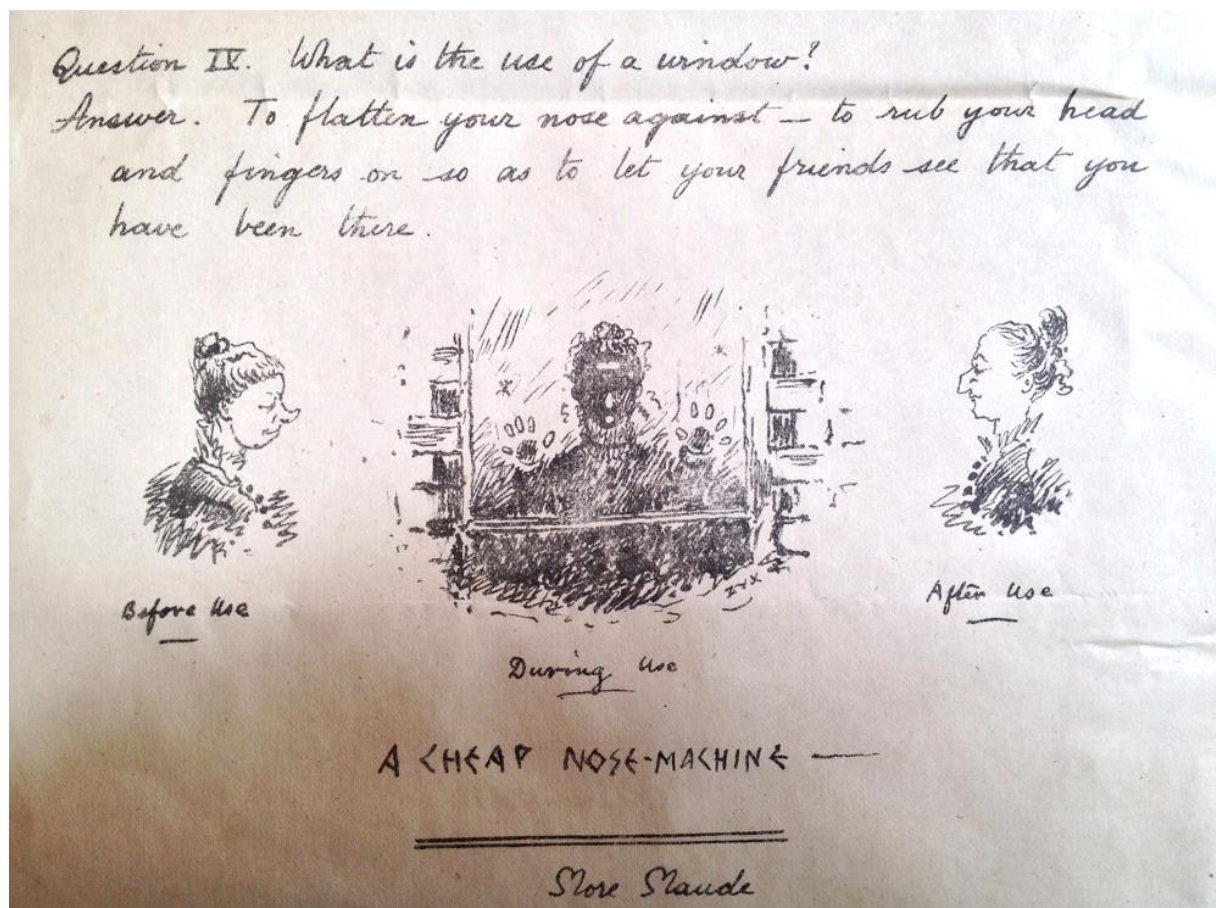 Question IV. What is the use of a window?
Answer. To flatten your nose against — to rub your head
and fingers on so as to let your friends see that you
have been there.
Before Use
After Use
During Use
A CHEAP NOSE-MACHINE —
More Maude